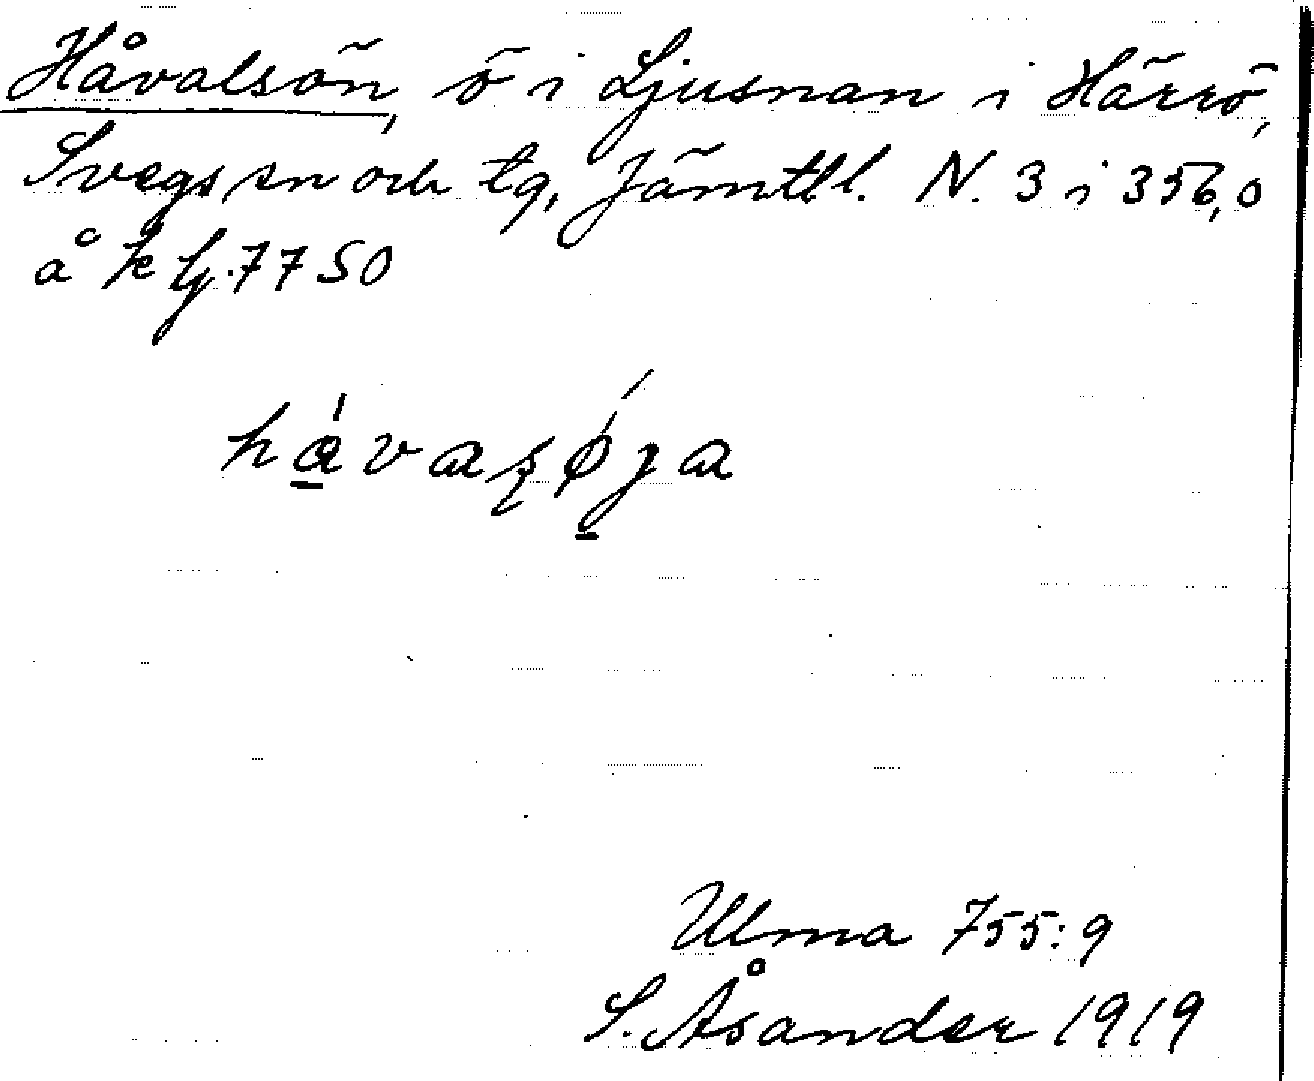 Håvalsön, ö i Ljusnan i Härrö,
Svegs sn och tg, Jämtl l. N. 3 i 356,0
å lj. 7750
håvaʂøja
Ulma 755:9
S. Åsander 1919